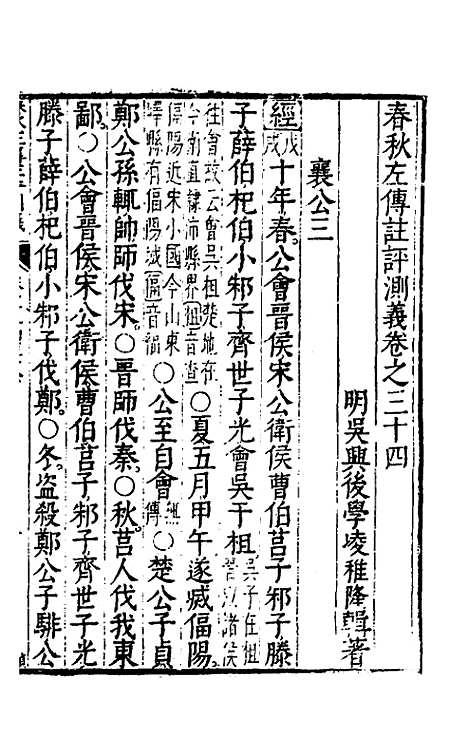 春秋左傳註評測義卷之三十四
明吳興後學凌稚隆輯著
襄公三
經戊戌十年春公會晉侯宋公衛侯曹伯莒子邾子滕
子薛伯杞伯小邾子齊世子光會吳于柤吳子在柤晉以諸侯
往會故云會吳柤楚地在
今
直隸
縣界柤音查
○夏五月甲午遂滅偪陽
偪陽近宋小國今山東
嶧縣有偪陽城偪音福
○公至自會無傳○楚公子貞
鄭公孫輒帥師伐宋○晉師伐秦○秋莒人伐我東
鄙○公會晉侯宋公衛侯曹伯莒子邾子齊世子光
滕子薛伯杞伯小邾子伐鄭○冬盜殺鄭公子騑公